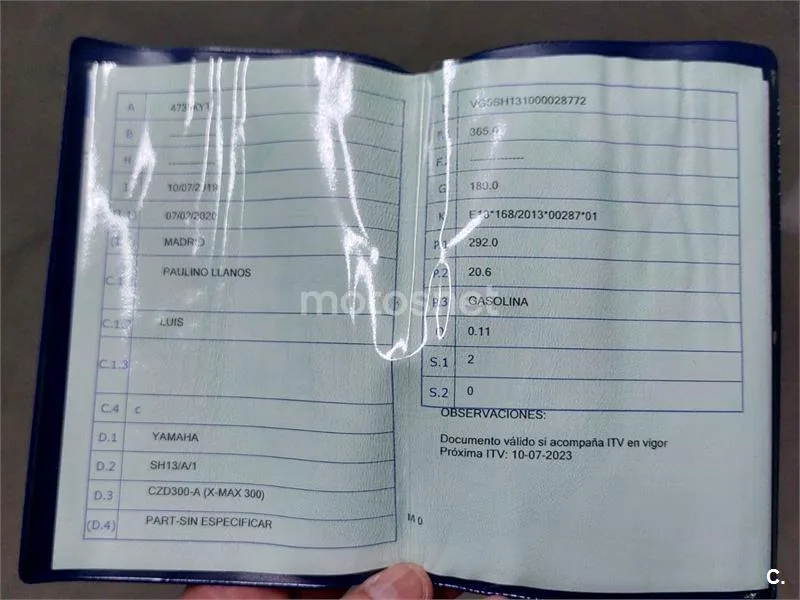 A
B ------------
H ------------
I 10/07/2019
07/02/2020
MADRID
PAULINO LLANOS
LUIS
C.1.3
C.4 c
D.1 YAMAHA
D.2 SH13/A/1
D.3 CZD300-A (X-MAX 300)
(D.4) PART-SIN ESPECIFICAR
365.0
------------
G 180.0
K
P.1 292.0
P.2 20.6
P.3 GASOLINA
Q 0.11
S.1 2
S.2 0
OBSERVACIONES:
Documento válido si acompaña ITV en vigor
Próxima ITV: 10-07-2023
motos.net
C.